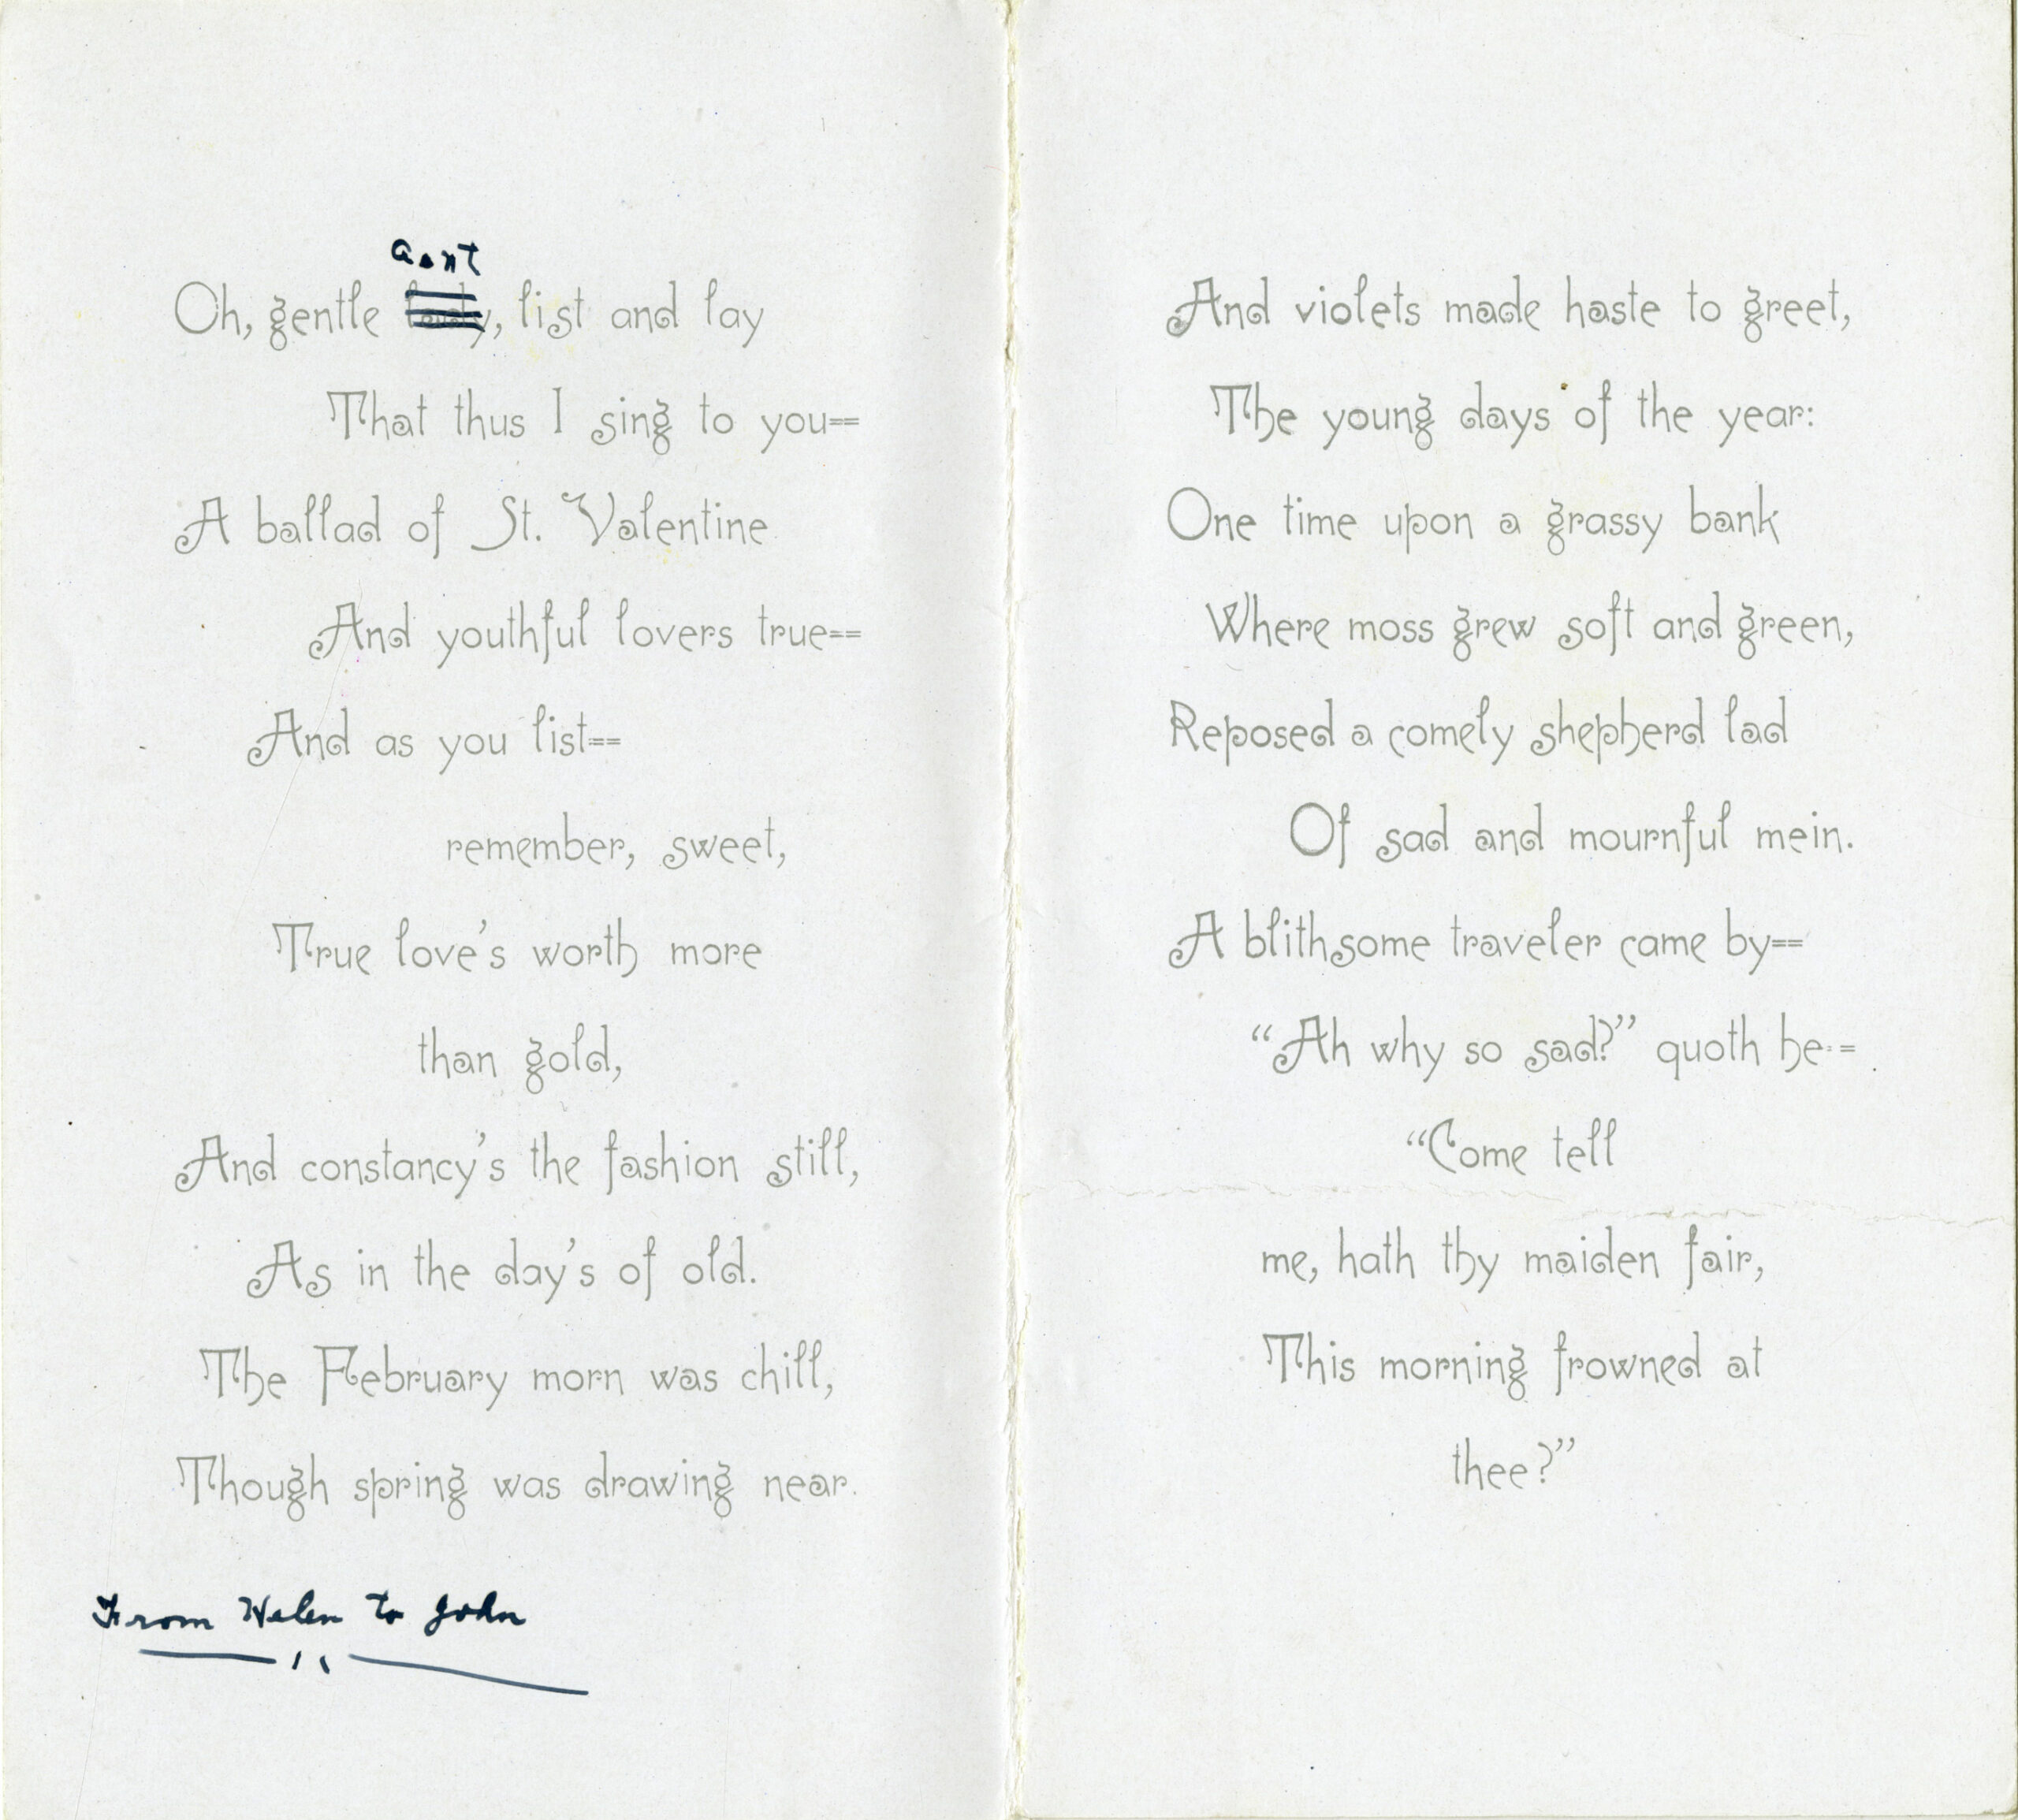 aont
Oh, gentle lady, list and lay
That thus I sing to you==
A ballad of St. Valentine
And youthful lovers true==
And as you list==
remember, sweet,
True love's worth more
than gold,
And constancy's the fashion still,
As in the day's of old.
The February morn was chill,
Though spring was drawing near.
From Helen to John
And violets made haste to greet,
The young days of the year:
One time upon a grassy bank
Where moss grew soft and green,
Reposed a comely shepherd lad
Of sad and mournful mein.
A blithsome traveler came by==
“Ah why so sad?” quoth he==
“Come tell
me, hath thy maiden fair,
This morning frowned at
thee?”